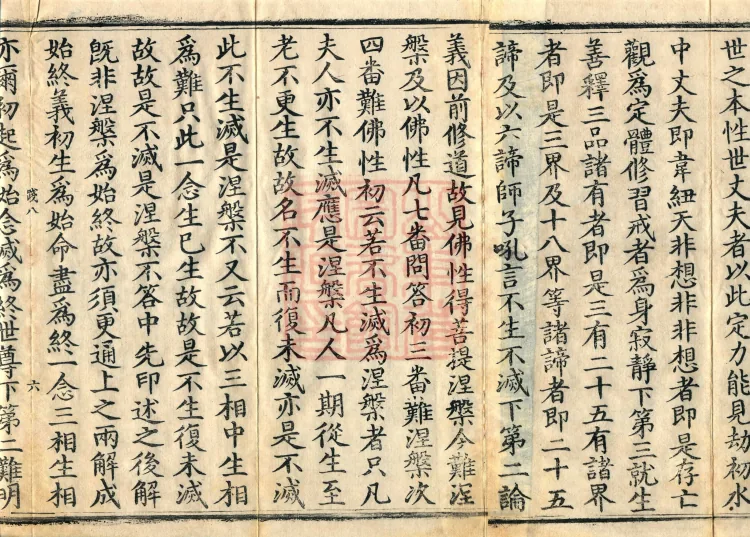 世之本性世丈夫者以此定力能見劫初水
中丈夫即韋紐天非想非非想者即是存亡
觀爲定體修習戒者爲身寂靜下第三就生
善釋三品諸有者即是三有二十五有諸界
者即是三界及十八界等諸諦者即二十五
諦及以六諦師子吼言不生不滅下第二論
義因前修道故見佛性得菩提涅槃今難涅
槃及以佛性凡七番問答初三番難涅槃次
四番難佛性初云若不生滅爲涅槃者只凡
夫人亦不生滅應是涅槃凡人一期從生至
老不更生故故名不生而復未滅亦是不滅
此不生滅是涅槃不又云若以三相中生相
爲難只此一念生已生故故是不生復未滅
故故是不滅是涅槃不答中先印述之後解
旣非涅槃爲始終故亦須更通上之兩解成
始終義初生爲始命盡爲終一念三相生相
八 六
亦爾初起爲始念滅爲終世尊下第二難明